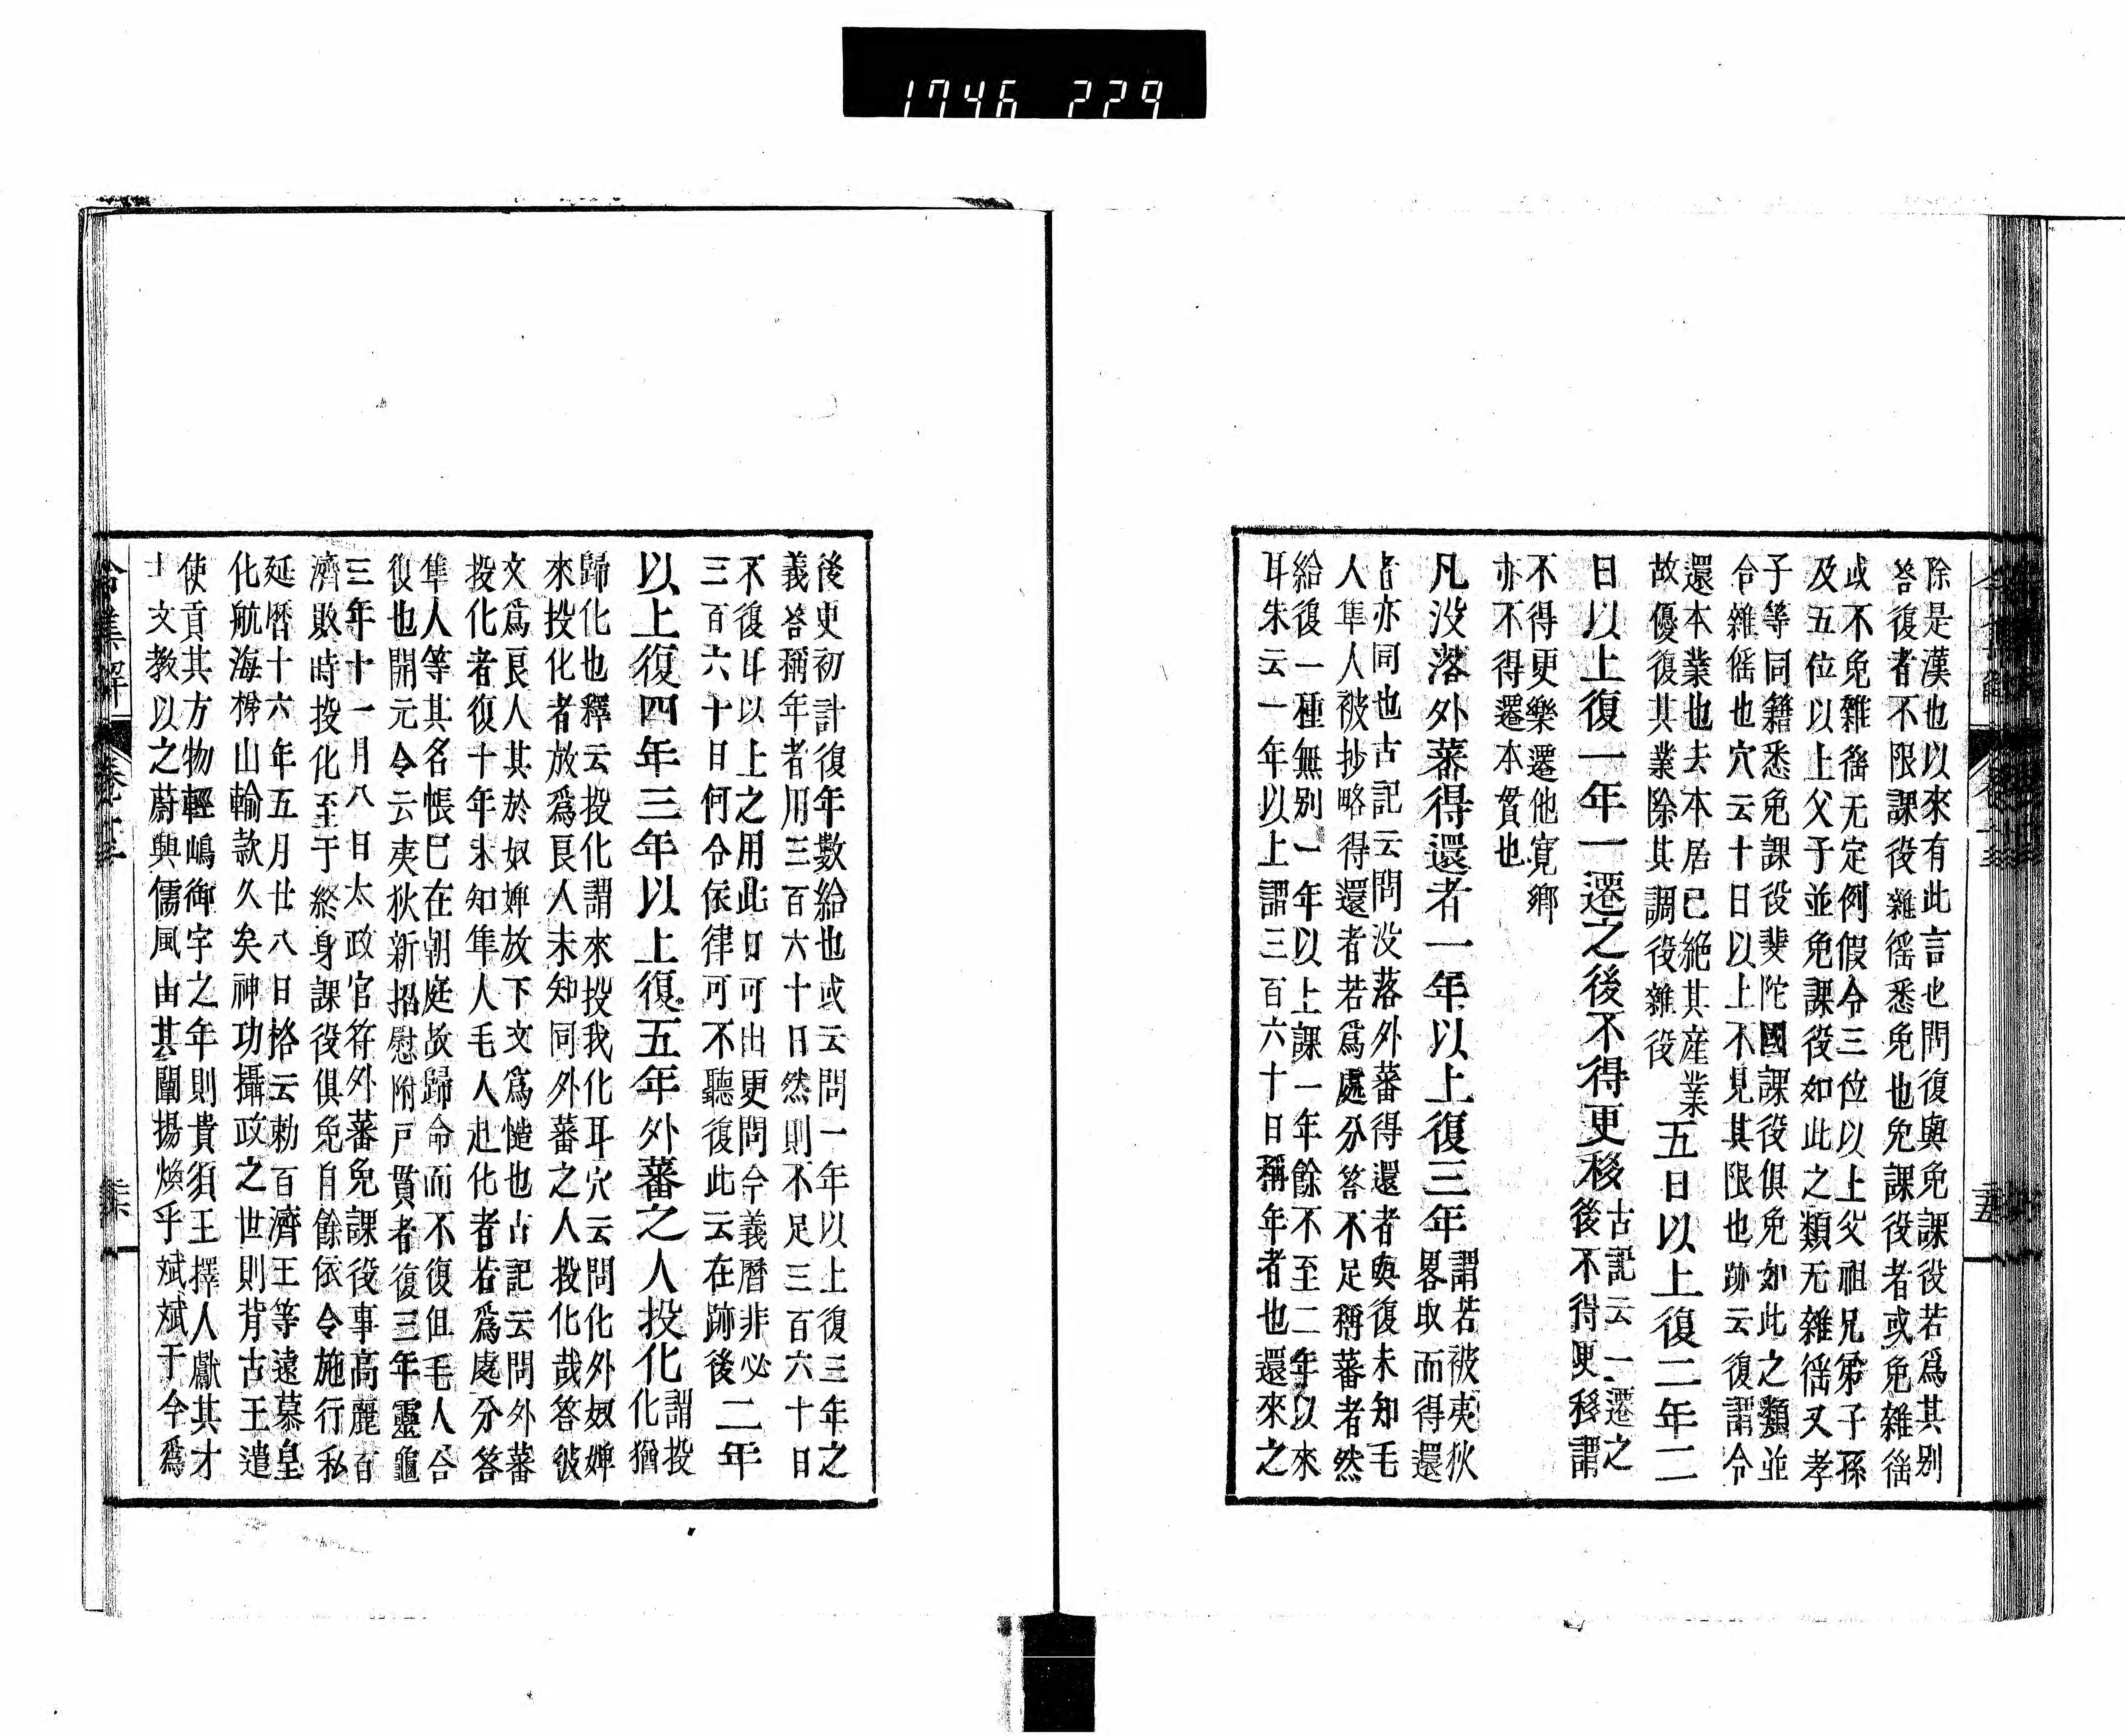 1746 229
除是漢也以來有此言也問復與免課役若爲其別
答復者不限課役雜徭悉免也免課役者或免雜徭
或不免雜徭无定例假令三位以上父祖兄弟子孫
及五位以上父子並免課役如此之類无雜徭又孝
子等同籍悉免課役斐陀國課役俱免如此之類並
令雜徭也穴云十日以上不見其限也跡云復謂令
還本業也去本居已絕其産業
故優復其業除其調役雜役
五日以上復二年二
日以上復一年一遷之後不得更移
古記云一遷之
後不得更移謂
不得更樂遷他寛鄉
亦不得遷本貫也
凡没落外蕃得還者一年以上復三年
謂若被夷狄
畧取而得還
者亦同也古記云問没落外蕃得還者與復未知毛
人隼人被抄略得還者若爲處分答不足稱蕃者然
給復一種無別一年以上課一年餘不至二年以來
耳朱云一年以上謂三百六十日稱年者也還來之
二十五
後更初計復年數給也或云問一年以上復三年之
義答稱年者用三百六十日然則不足三百六十日
不復耳以上之用此日可出更問今義曆非必
三百六十日何令依律可不聽復此云在跡後
二年
以上復四年三年以上復五年外蕃之人投化
謂投
化猶
歸化也釋云投化謂來投我化耳穴云問化外奴婢
來投化者放爲良人未知同外蕃之人投化哉答彼
文爲良人其於奴婢放下文爲慥也古記云問外蕃
投化者復十年未知隼人毛人赴化者若爲處分答
隼人等其名帳已在朝庭故歸命而不復但毛人合
復也開元令云夷狄新招慰附戸貫者復三年靈龜
三年十一月八日太政官符外蕃免課役事高麗百
濟敗時投化至于終身課役俱免自餘依令施行私
延暦十六年五月廿八日格云勅百濟王等遠慕皇
化航海梯山輸款久矣神功攝政之世則背古王遣
使貢其方物輕嶋御宇之年則貴須王擇人獻其才
士文教以之蔚興儒風由其闡揚煥乎斌斌于今爲
令集解
卷十三